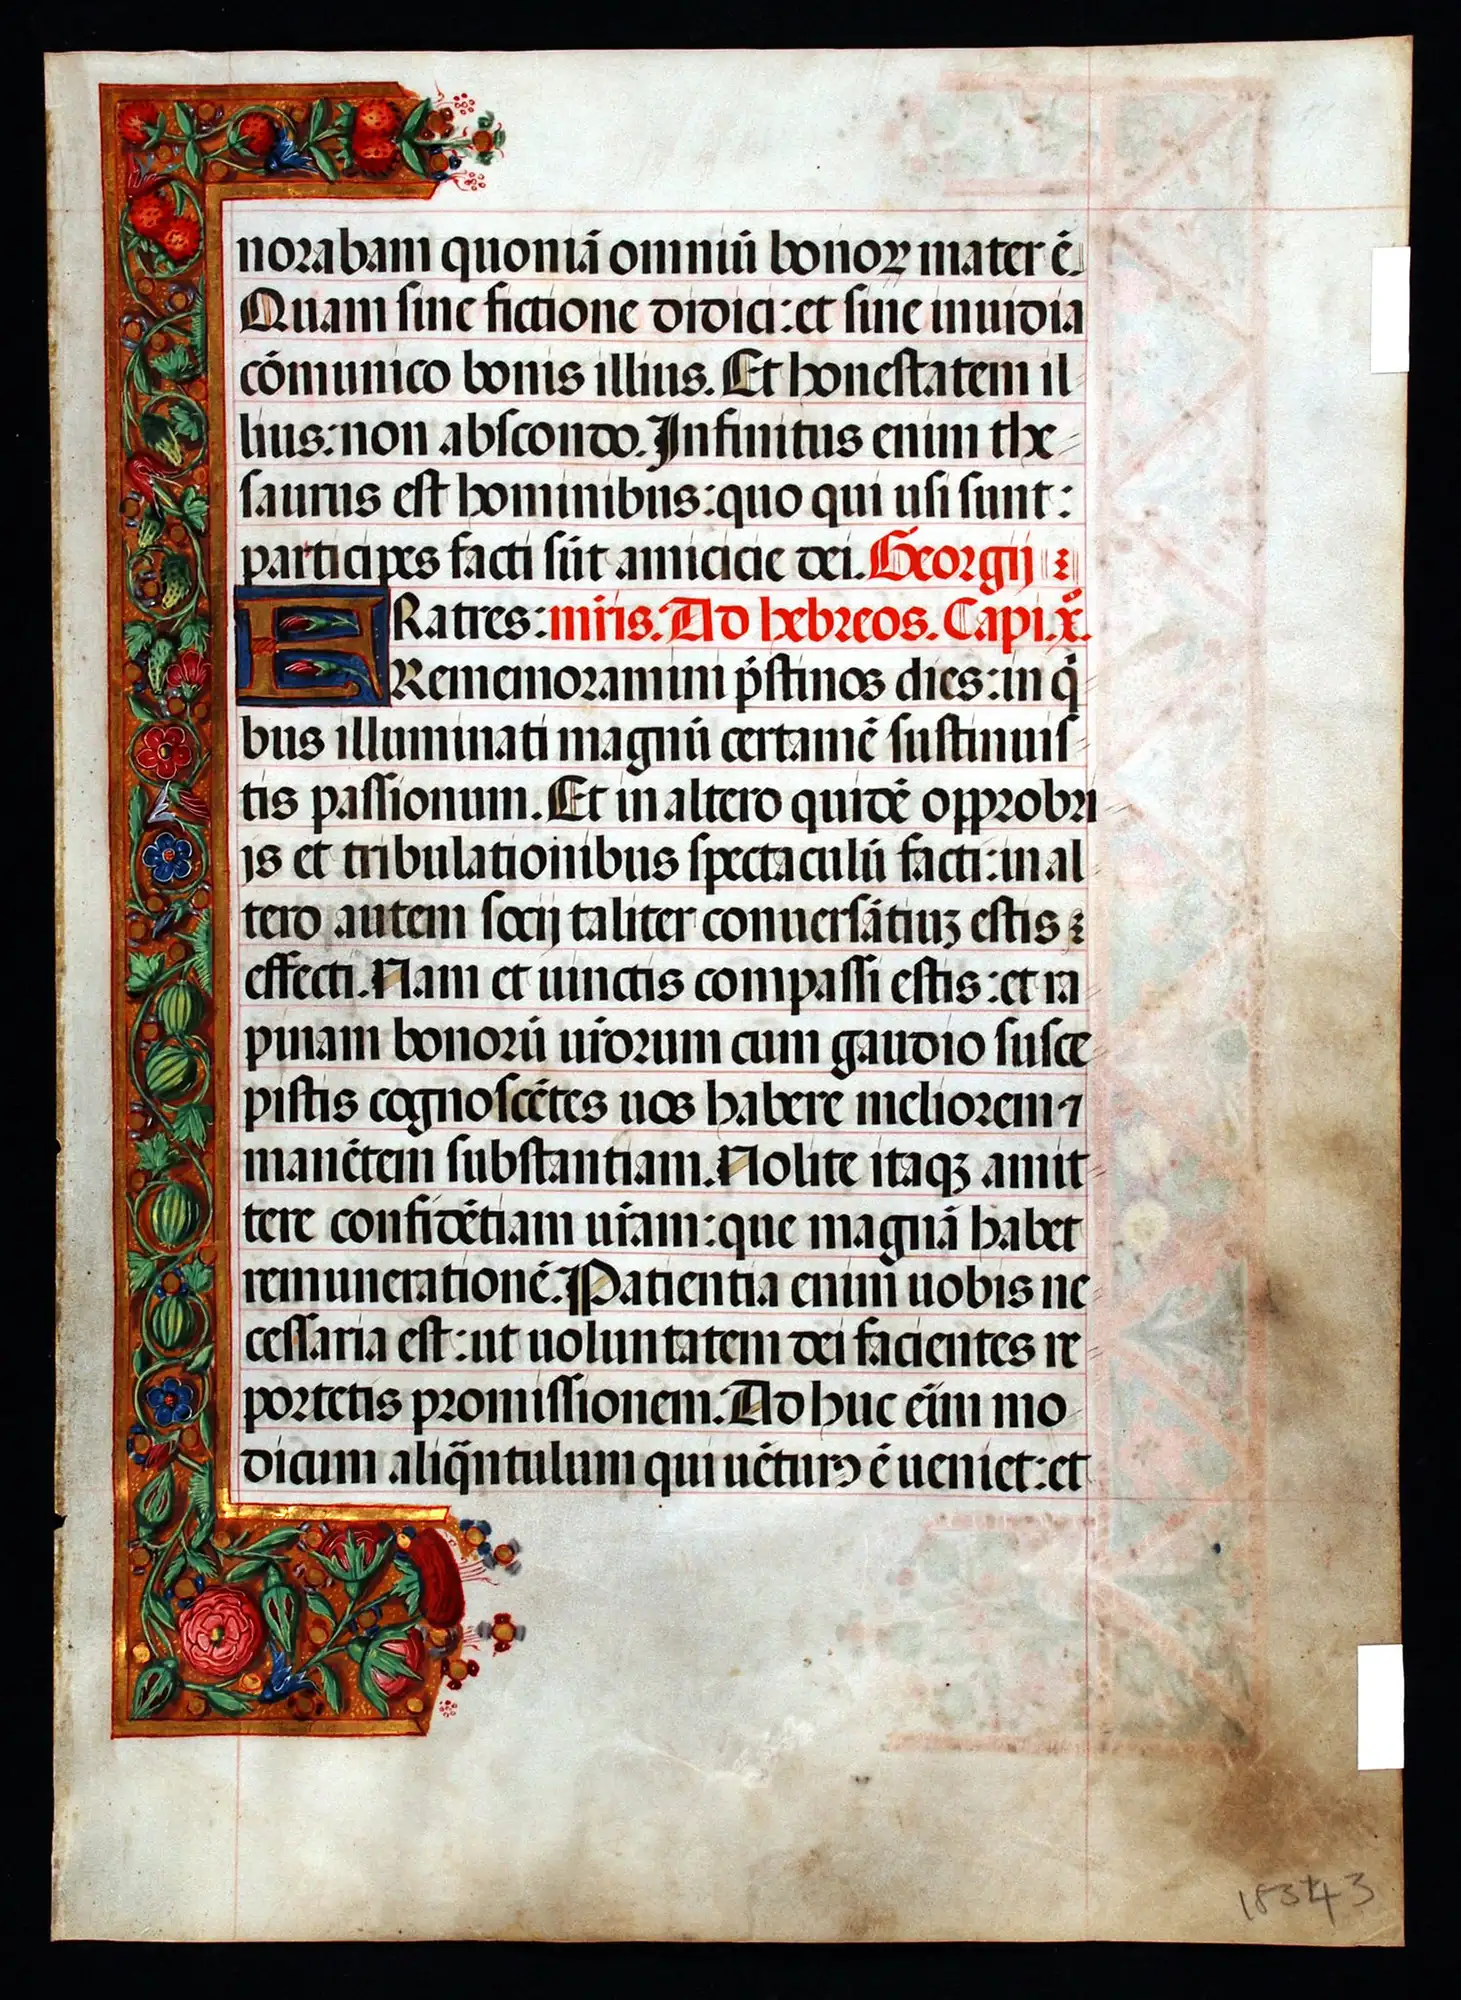 norabam quoniā omniū bonoꝝ mater ē.
Quam sine fictione didici: et sine inuidia
cōmunico bonis illius. Et honestatem il
lius: non abscondo. Infinitus enim the
saurus est hominibus: quo qui usi sunt:
participes facti sūt amicicie dei. Georgij
Ratres: mr̄is. Ad hebreos. Capi. x̊.
Rememoramini p̄stinos dies: in q̇
bus illuminati magnū certamē sustinuis
tis passionum. Et in altero quidē opprobri
is et tribulationibus spectaculū facti: in al
tero autem socij taliter conuersātiuȝ estis
effecti. Nam et uinctis compassi estis: et ra
pinam bonorū ur̄orum cum gaudio susce
pistis cognoscētes uos habere meliorem ⁊
manētem substantiam. Nolite itaqȝ amit
tere confidētiam ur̄am: que magnā habet
remunerationē. Patientia enim uobis ne
cessaria est: ut uoluntatem dei facientes re
portetis promissionem. Ad huc eīm mo
dicum aliq̄ntulum qui uēturꝰ ē ueniet: et
18343